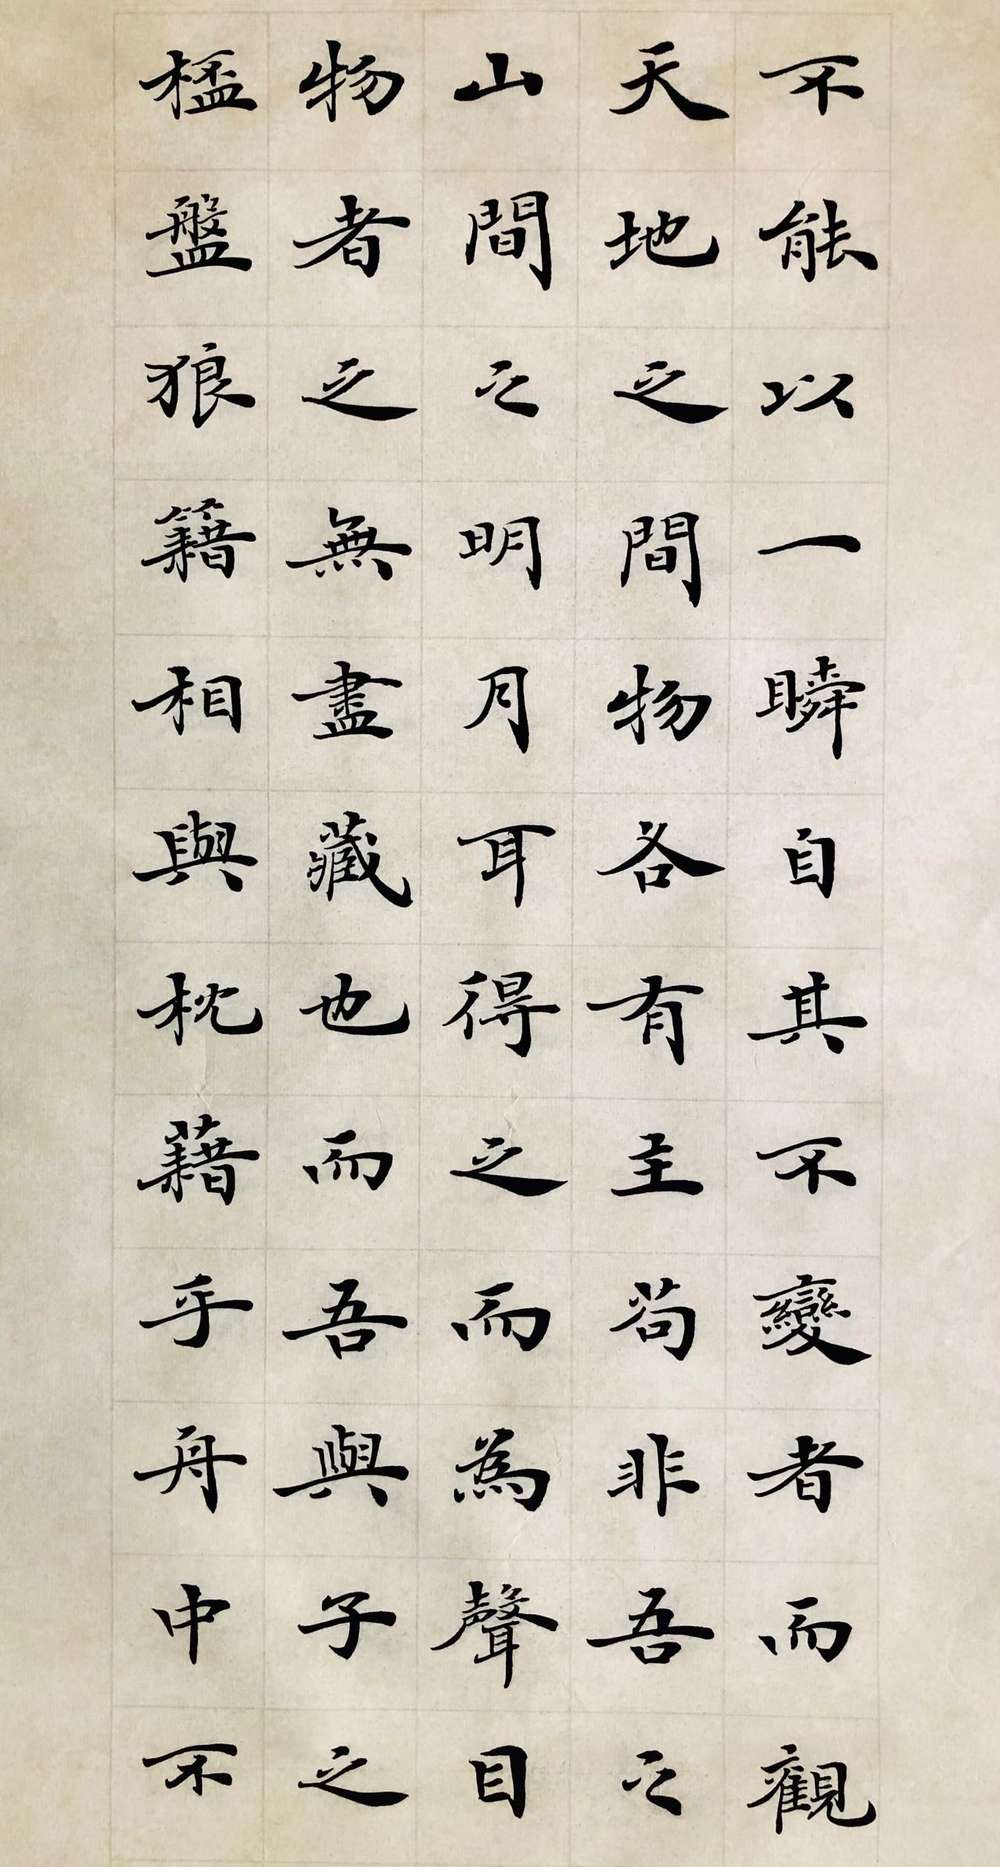 不能以一瞬自其不變者而觀
天地之間物各有主苟非吾之
山間之明月耳得之而為聲目
物者之無盡藏也吾與子之
杯盤狼籍相與枕藉乎舟中不